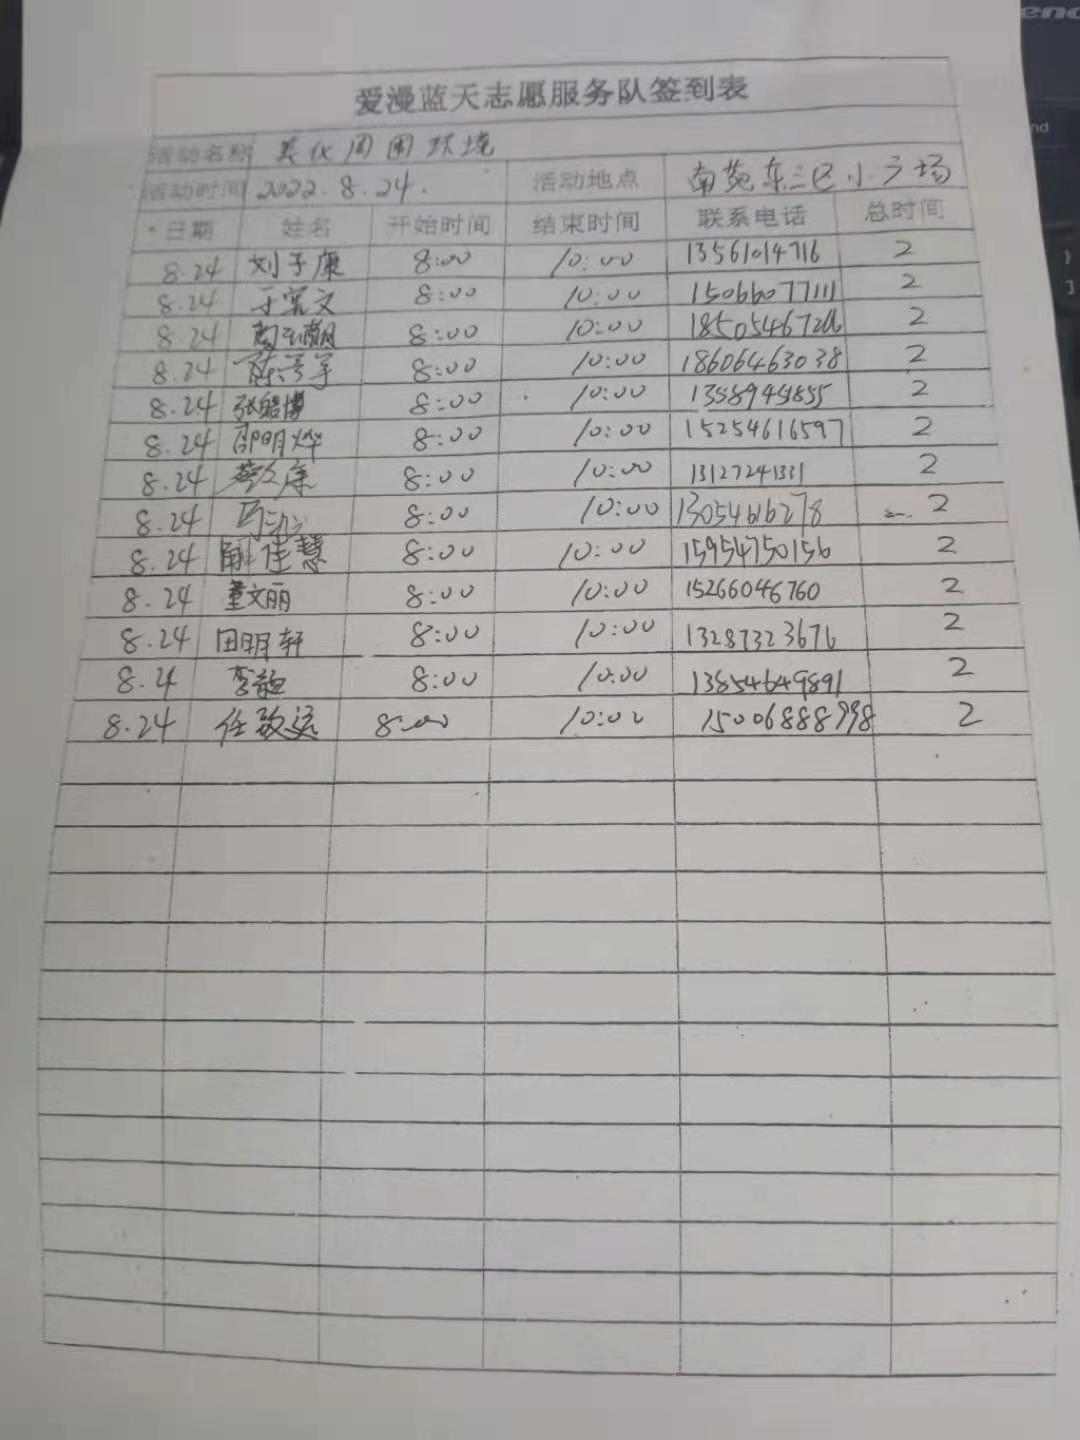 爱漫蓝天志愿服务队签到表
活动名称 美化周围环境
活动时间 2022.8.24. 活动地点 南苑东三区小广场
日期 姓名 开始时间 结束时间 联系电话 总时间
8.24 刘子康 8:00 10:00 13561014716 2
8.24 8:00 10:00 15066077111 2
8.24 8:00 10:00 2
8.24 8:00 10:00 18606463038 2
8.24 张皓博 8:00 10:00 2
8.24 邵明烨 8:00 10:00 15254616597 2
8.24 8:00 10:00 13127241331 2
8.24 8:00 10:00 13054616278 2
8.24 解佳慧 8:00 10:00 15954750156 2
8.24 董文丽 8:00 10:00 15266046760 2
8.24 田明轩 8:00 10:00 13287323676 2
8.24 8:00 10:00 13854649891 2
8.24 任致远 8:00 10:00 15006888998 2